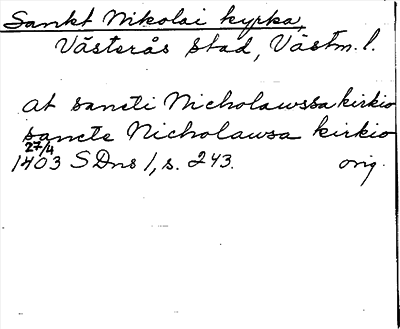 Sankt Nikolai kyrka,
Västerås stad, Västm. l.
at sancti Nicholawssa kirkio
sancte Nicholawsa kirkio
27/4
1403 SDns 1, s. 243. orig.